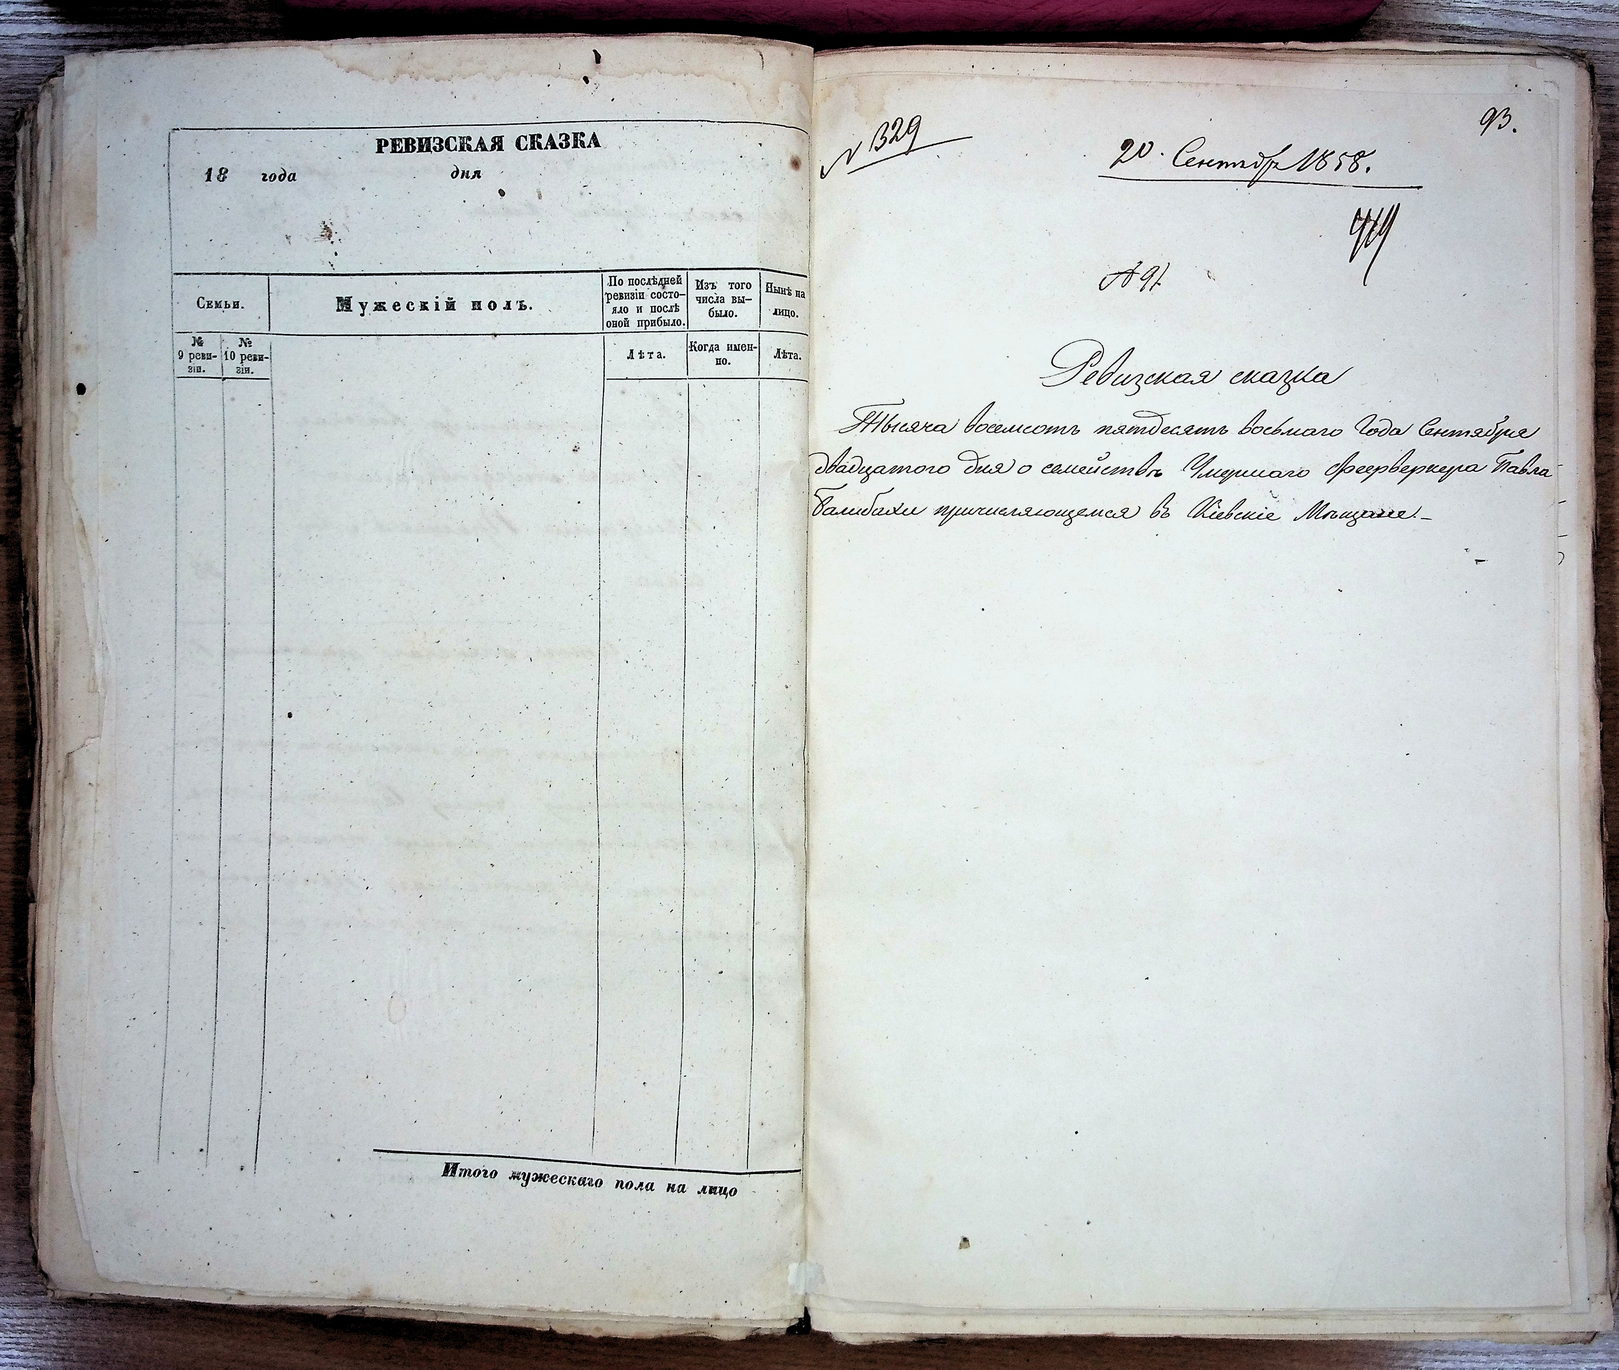 РЕВИЗСКАЯ СКАЗКА
18 года дня
Семьи.
Мужескій полъ.
По послѣдней ревизіи состо-
яло и послѣ
оной прибыло.
Изъ того
числа вы-
было.
Нынѣ на
лицо.
№
9 реви-
зіи.
№
10 реви-
зіи.
Лѣта.
Когда имен-
но.
Лѣта.
Итого мужескаго пола на лицо
93.
N 329
20. Сентябр 1858.
Ревизская сказка
Тысяча восемсотъ пятдесятъ восьмаго Года Сентября
двадцатого дня о семействѣ Умершаго Феерверкера Павла
причисляющемся въ Кіевскіе Мѣщане.